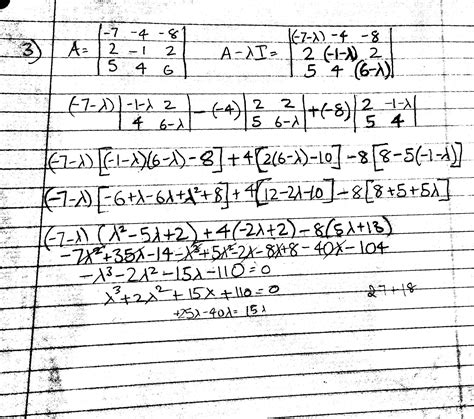 3) A = |-7 -4 -8| A-λI = |(-7-λ) -4 -8|
|2 -1 2| |2 (-1-λ) 2|
|5 4 6| |5 4 (6-λ)|
(-7-λ) |-1-λ 2| -(-4) |2 2| +(-8) |2 -1-λ|
|4 6-λ| |5 6-λ| |5 4|
(-7-λ) [(-1-λ)(6-λ)-8] +4[2(6-λ)-10] -8[8-5(-1-λ)]
(-7-λ) [-6+λ-6λ+λ²+8] +4[12-2λ-10] -8[8+5+5λ]
(-7-λ) (λ²-5λ+2) +4(-2λ+2) -8(5λ+13)
-7λ²+35λ-14-λ³+5λ²-2λ-8λ+8-40λ-104
-λ³-2λ²-15λ-110=0
λ³+2λ²+15λ+110=0
27+18
+25λ-40λ=15λ